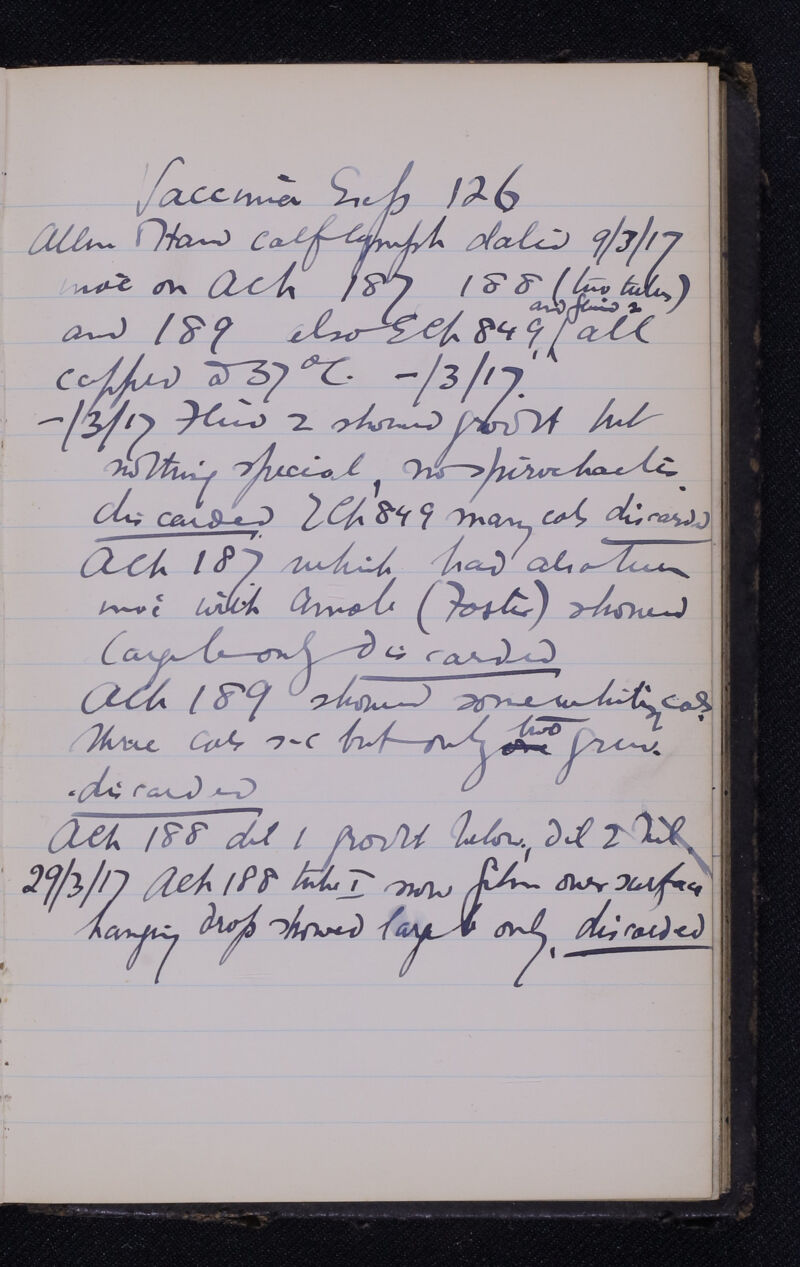 Vaccinia Exp 126
Allen & Han calf lymph dated 9/3/17
inoc on Ach 187 188 (two tubes)
and fluid 2
and 189 also ECh 849, all
capped @ 37 °C. -/3/17.
-/3/17 Fluid 2 showed growth but
nothing special, no spirochaetes
discarded ECh 849 many cols discarded
Ach 187 which had also been
inoc with (Foster) showed
large b only discarded
Ach 189 showed some whitish cols
three cols s-c but only two one grew.
discarded
Ach 188 dil 1 growth below, dil 2 nil.
29/3/17 Ach 188 tube I now film over surface
hanging drop showed large b only, discarded